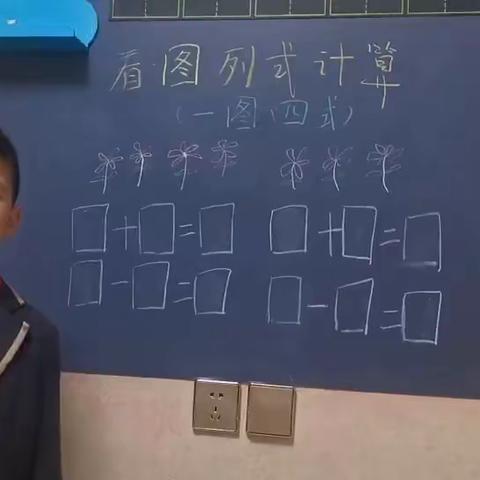 看图列式计算
(一图四式)
□+□=□ □+□=□
□-□=□ □-□=□